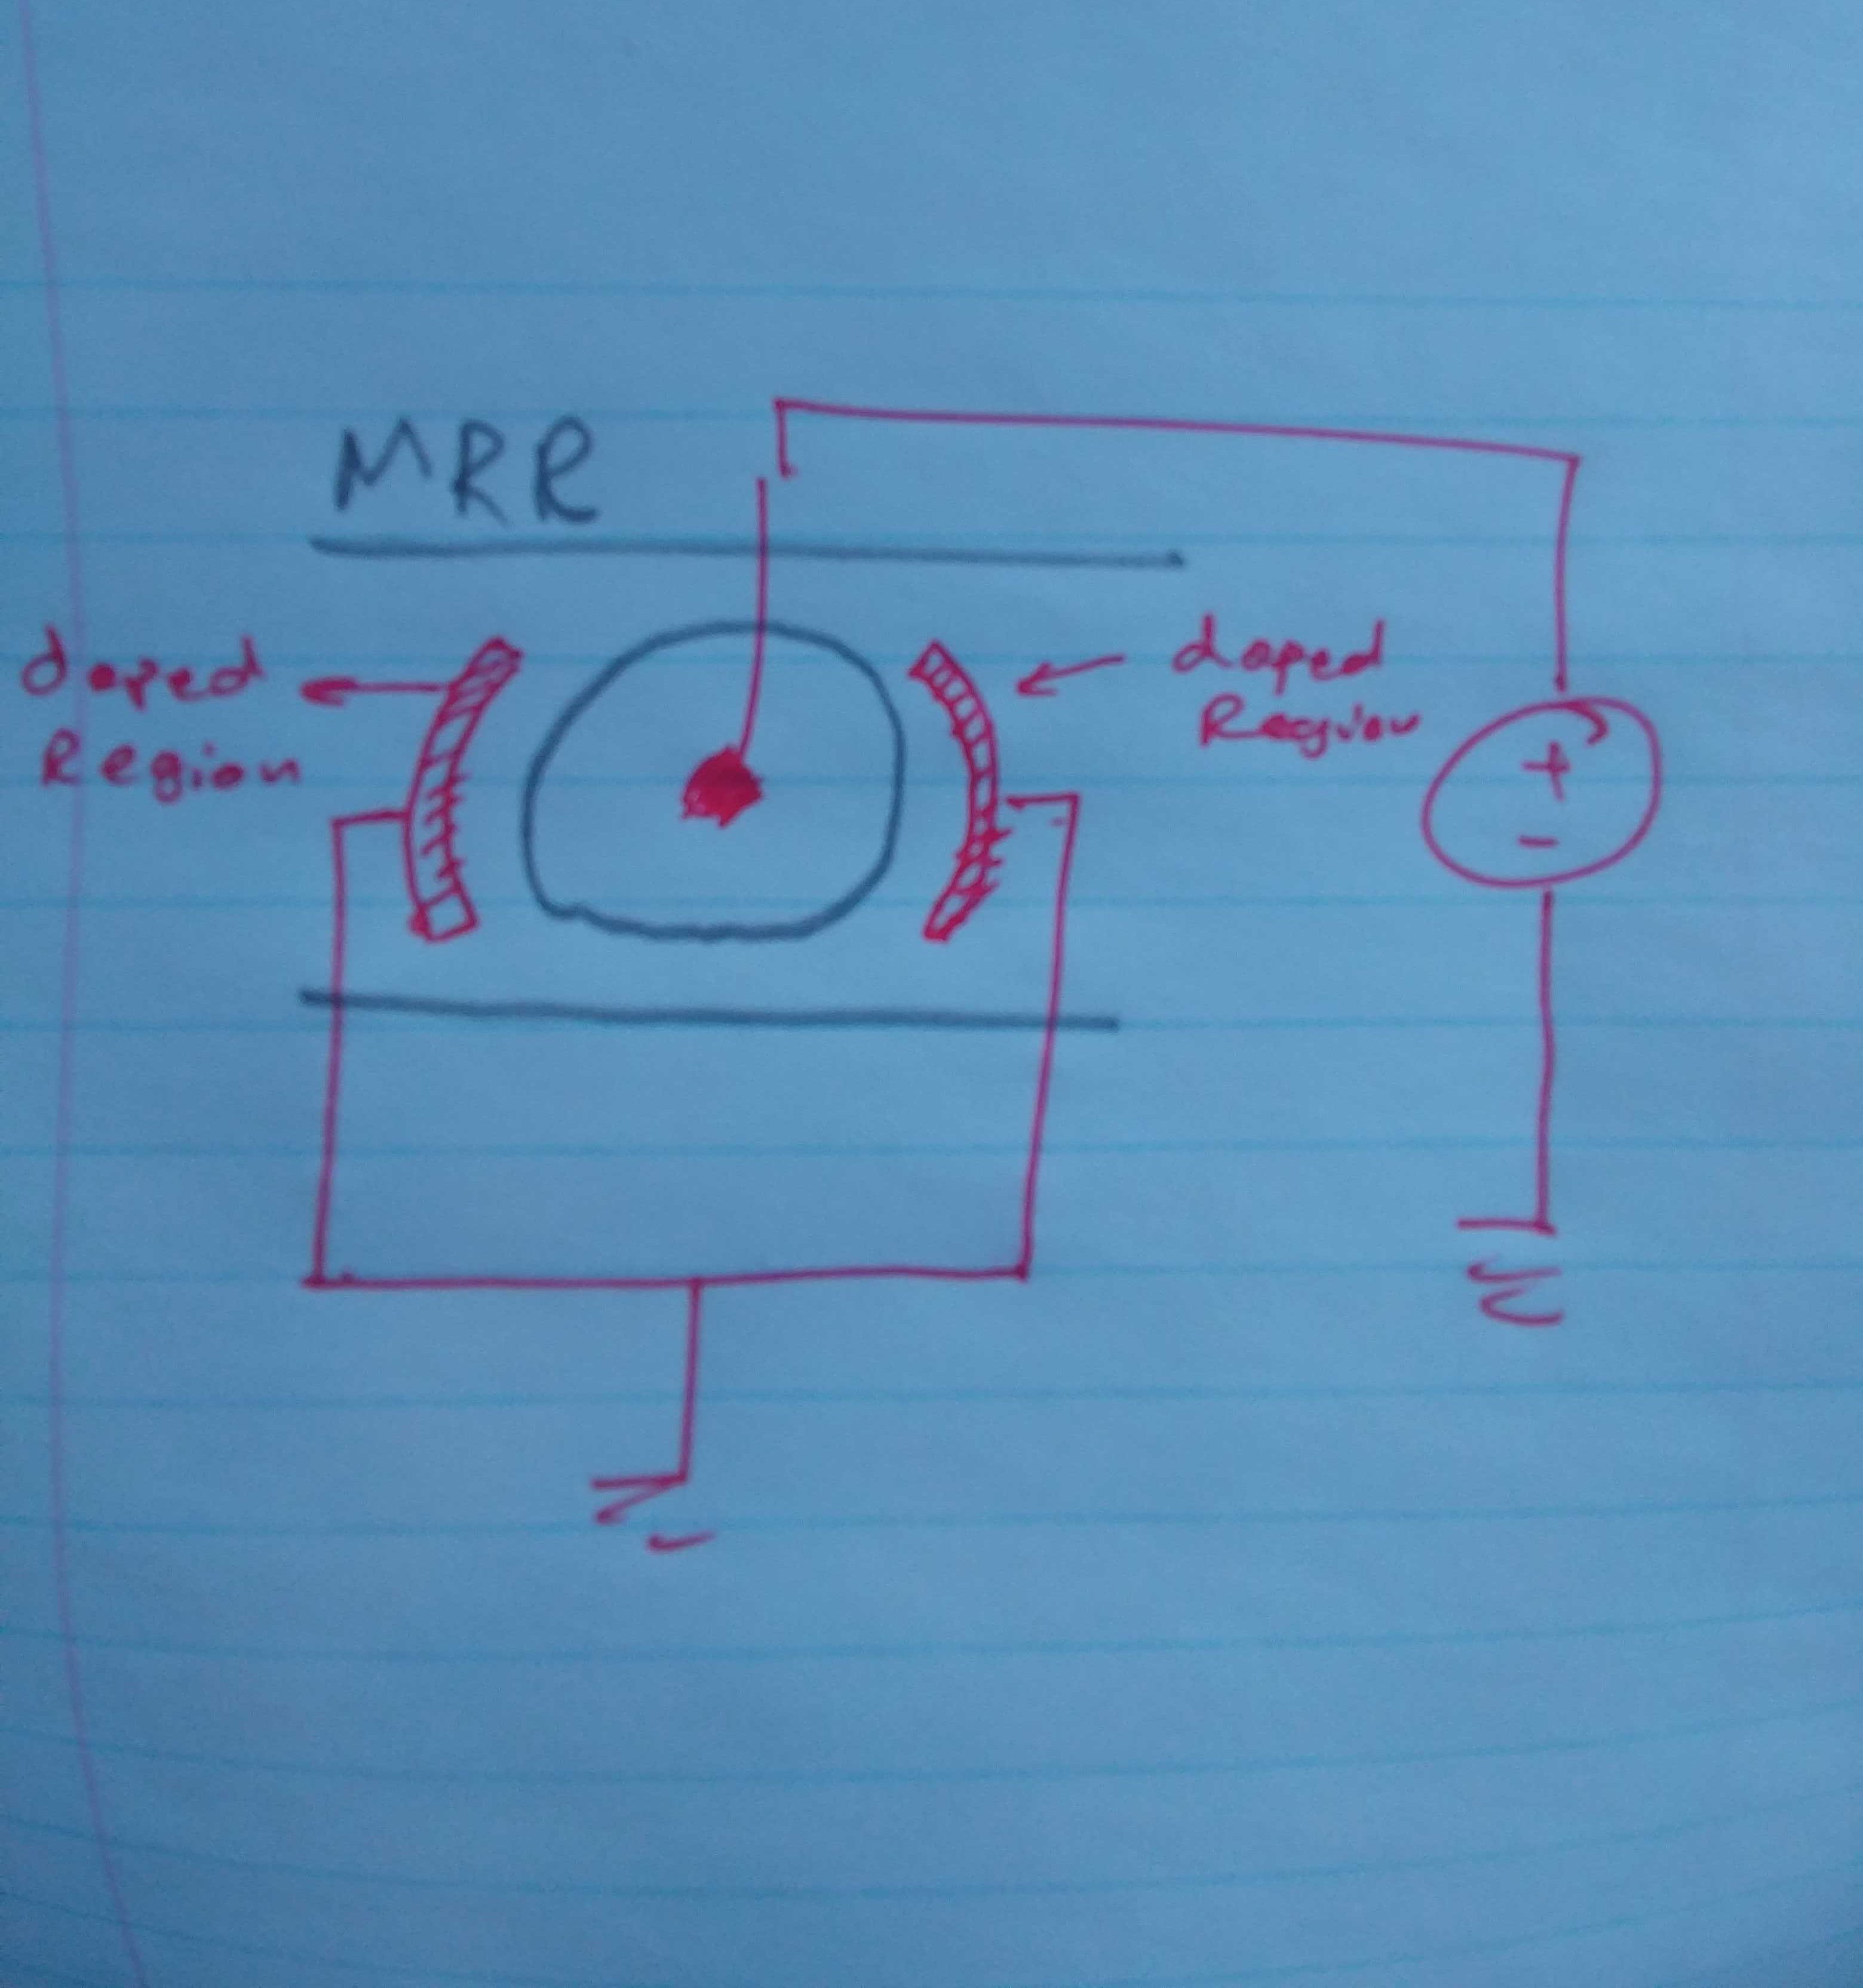 MRR
doped
Region
doped
Region
+
-